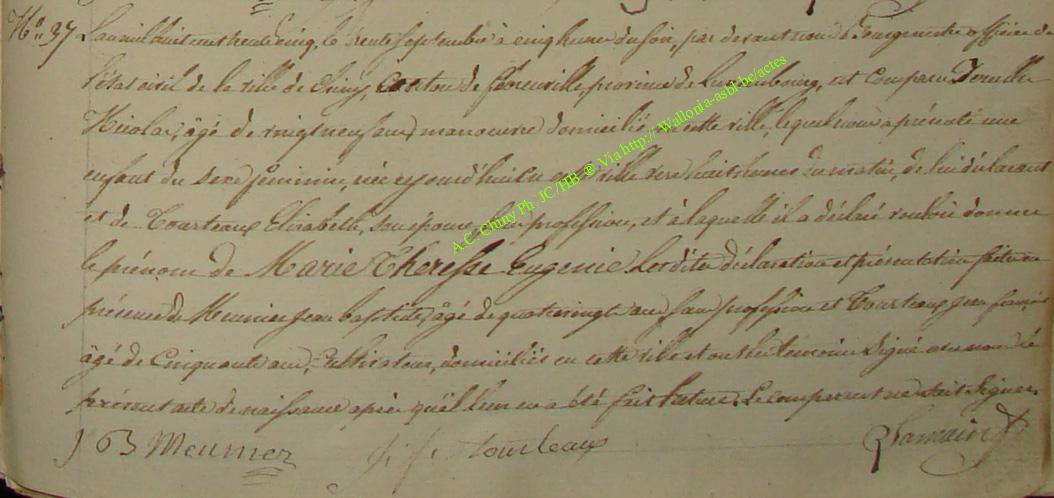 N° 37 L'an mil huit cent trente cinq, le trente septembre à cinq heures du soir, par devant nous Bourgmestre officier de
l'état civil de la ville de Chiny, Canton de florenville province de Luxembourg, est comparu
Nicolas, âgé de vingt neuf ans, manoeuvre domicilié en cette ville, lequel nous a présenté une
enfant du sexe féminin, née ce jourd'hui en cette ville vers huit heures du matin, de lui déclarant
et de Tourteaux Elisabeth, son épouse, sans profession, et à laquelle il a déclaré vouloir donner
le prénom de Marie Theresse Eugenie. Lesdites déclaration et présentation faites en
présence de Meunier Jean baptiste, âgé de quatrevingt ans, sans profession et Tourteaux Jean françois
âgé de Cinquante ans, Cultivateur, domiciliés en cette ville et ont les temoins Signé avec nous le
présent acte de naissance après qu'il leur en a été fait lecture. Le comparant ne sait Signer.
J B Meunier J. f. Tourteaux
A.C. Chiny Ph. JC/HB © Via http://Wallonia-asbl.be/actes